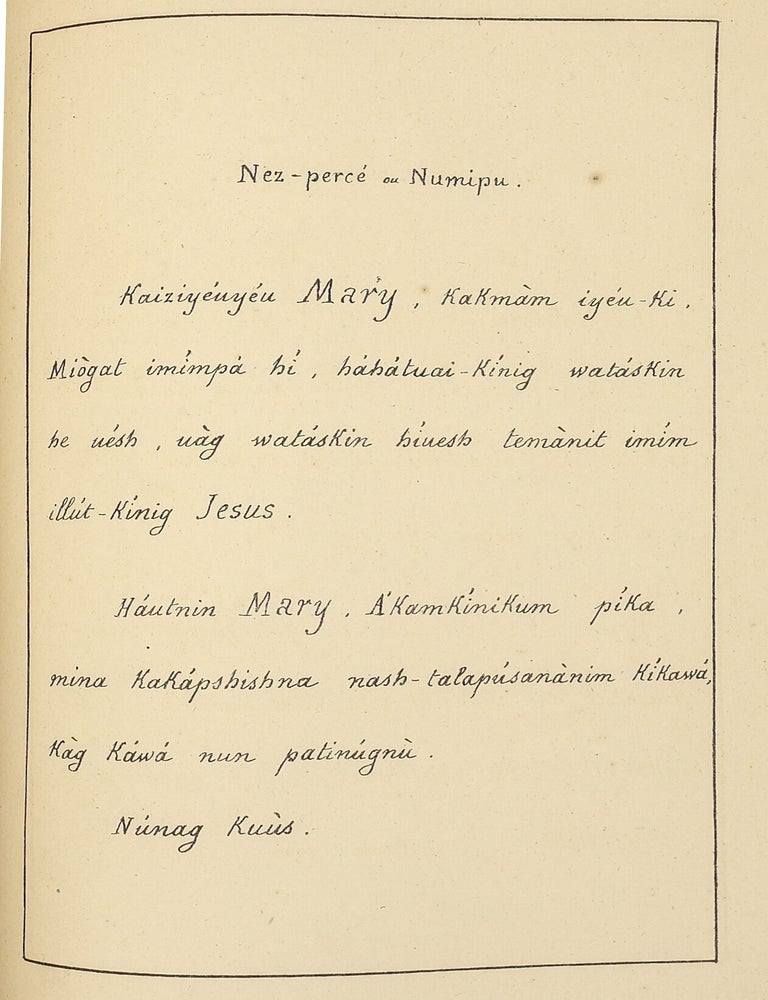 Nez-percé ou Numipu.
Kaiziyéuyéu Mary, KaKmàm iyéu-Ki.
Miògat imímpá hí, háhátuai-Kínig watáskin
he uésh, uàg watáskin híuesh temànit imím
illút-Kínig Jesus.
Háutnin Mary. ÁKamKíniKum píKa,
mina KaKápshishna nash-talapúsanànim KíKawá,
Kàg Káwá nun patinúgnù.
Núnag Kuùs.